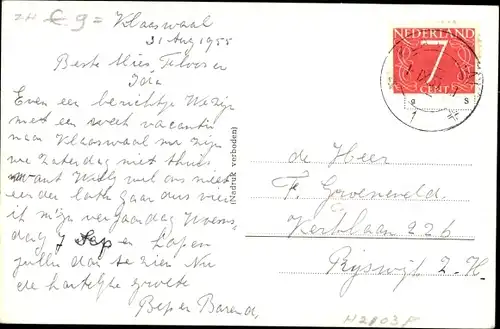 ZH € 9=
Klaaswaal
31 Aug 1955
Beste Mies
Ida
Even een berichtje We zijn
met een week vacantie
naar Klaaswaal we zijn
we Zaterdag niet thuis
want Willy wil ons niet
eerder laten gaan dus vier
ik mijn verjaardag Woens-
dag 7 Sep en hopen
jullie dan te zien Nu
de hartelijke groete
Bep en Barend,
(Nadruk verboden)
NEDERLAND
7
CENT
de Heer
F. Groeneveld
Kerklaan 226
Rijswijk Z.H.